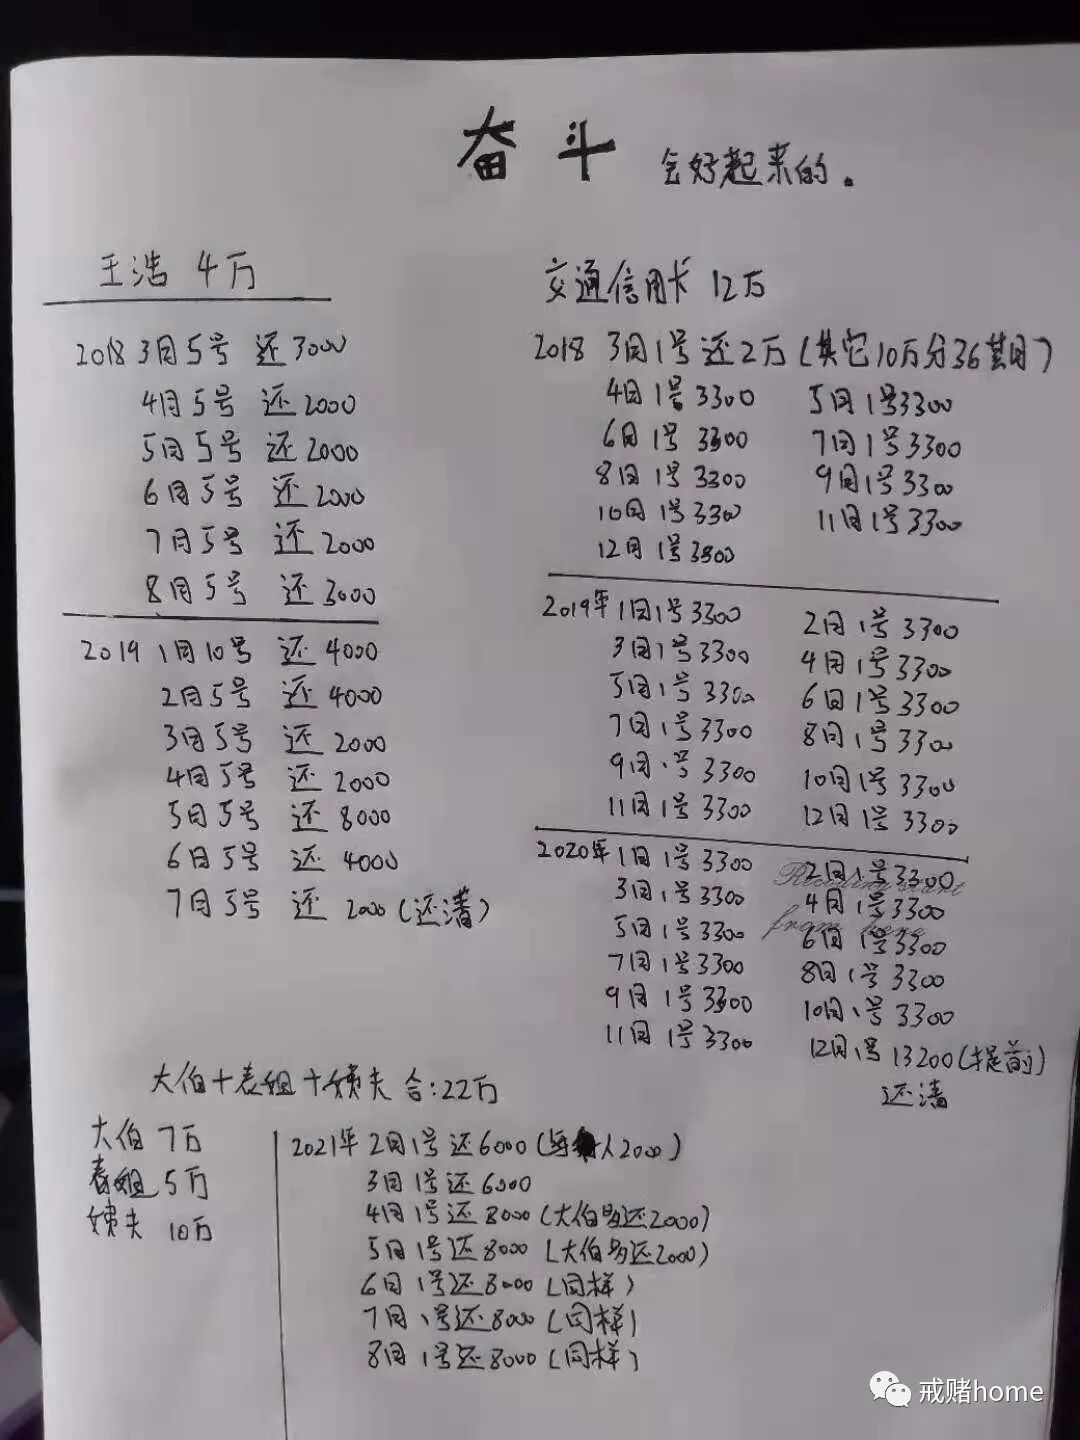 奋斗 会好起来的。
王浩 4万
2018 3月5号 还3000
4月5号 还2000
5月5号 还2000
6月5号 还2000
7月5号 还2000
8月5号 还3000
2019 1月10号 还4000
2月5号 还4000
3月5号 还2000
4月5号 还2000
5月5号 还8000
6月5号 还4000
7月5号 还2000(还清)
交通信用卡 12万
2018 3月1号还2万(其它10万分36期)
4月1号3300 5月1号3300
6月1号3300 7月1号3300
8月1号3300 9月1号3300
10月1号3300 11月1号3300
12月1号3300
2019年1月1号3300 2月1号3300
3月1号3300 4月1号3300
5月1号3300 6月1号3300
7月1号3300 8月1号3300
9月1号3300 10月1号3300
11月1号3300 12月1号3300
2020年1月1号3300 2月1号3300
3月1号3300 4月1号3300
5月1号3300 6月1号3300
7月1号3300 8月1号3300
9月1号3300 10月1号3300
11月1号3300 12月1号13200(提前)
还清
from here
大伯+表姐+姨夫 合:22万
大伯 7万
表姐 5万
姨夫 10万
2021年2月1号还6000(每人2000)
3月1号还6000
4月1号还8000(大伯多还2000)
5月1号还8000(大伯多还2000)
6月1号还8000(同样)
7月1号还8000(同样)
8月1号还8000(同样)
戒赌home